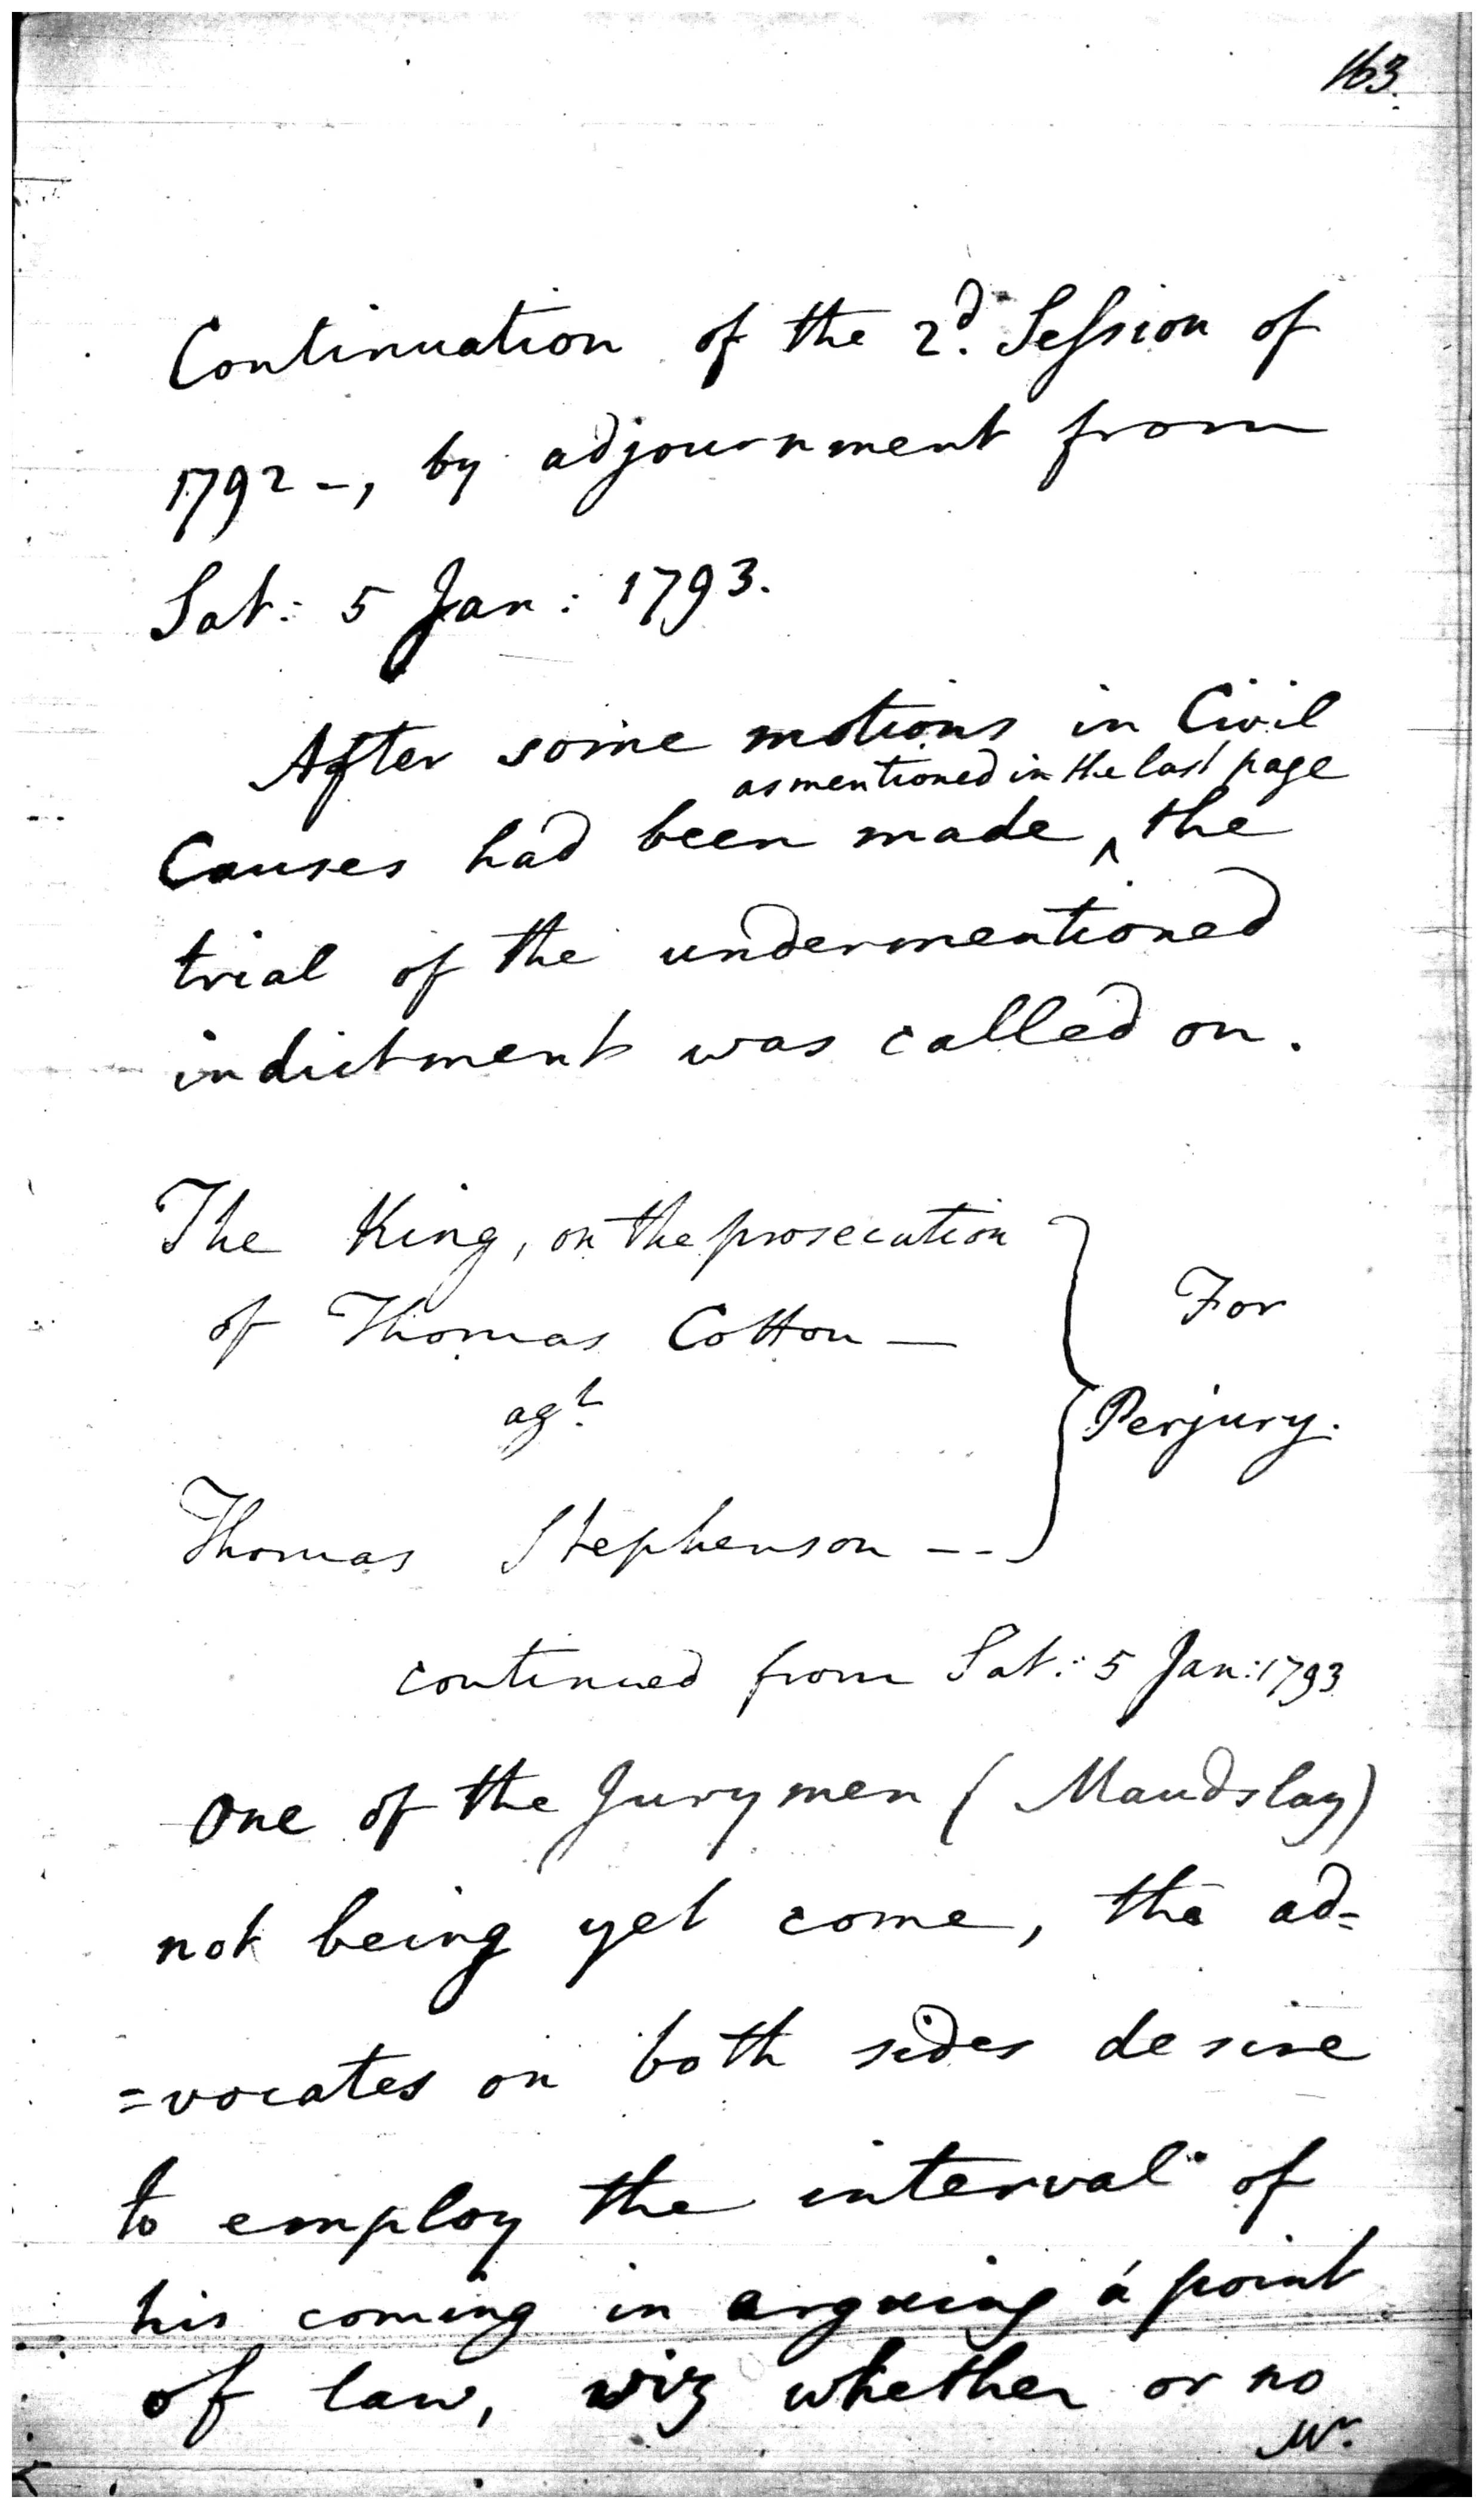 163.
Continuation of the 2d. Session of
1792 -, by adjournment from
Sat: 5 Jan: 1793.
After some motions in Civil
as mentioned in the last page
Causes had been made ‸ the
trial of the undermentioned
indictment was called on.
The King, on the prosecution
of Thomas Cotton —
For
agt.
Perjury.
Thomas Stephenson - -
continued from Sat: 5 Jan: 1793
One of the Jurymen (Maudslay)
not being yet come, the ad=
=vocates on both sides desire
to employ the interval of
his coming in arguing a point
of law, viz whether or no
Mr.